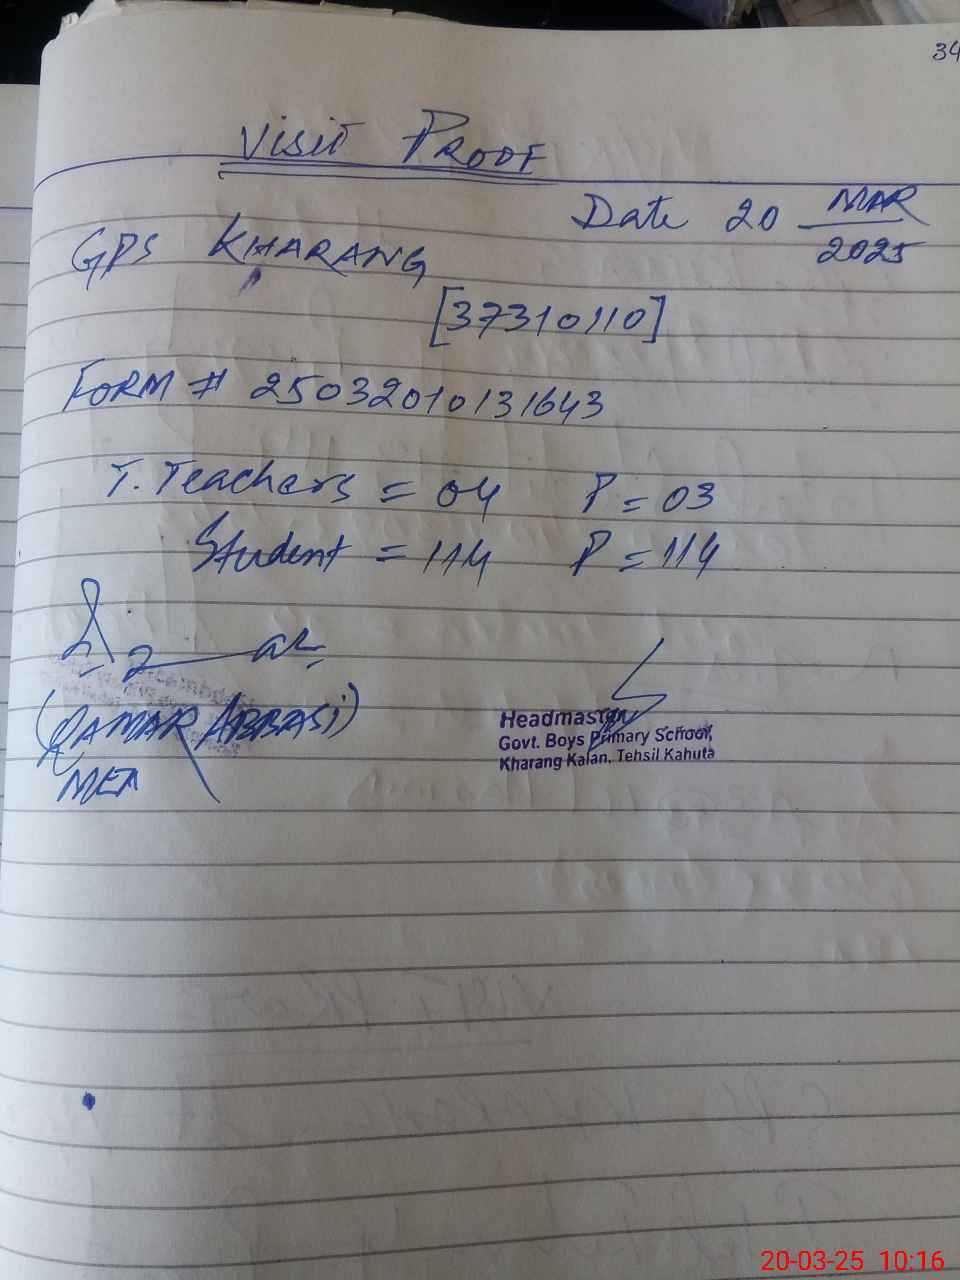 34
Visit PROOF
Date 20 MAR
2025
GPS KHARANG
[37310110]
FORM # 25032010131643
T. Teachers = 04 P = 03
Student = 114 P = 114
(QAMAR ABBASI)
MEA
Headmaster
Govt. Boys Primary School,
Kharang Kalan, Tehsil Kahuta
20-03-25 10:16